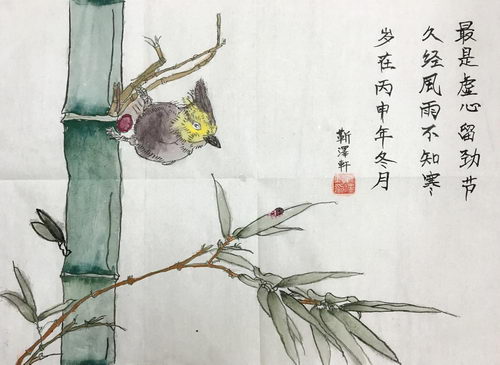 最是虚心留劲节
久经風雨不知寒
岁在丙申年冬月
靳澤軒